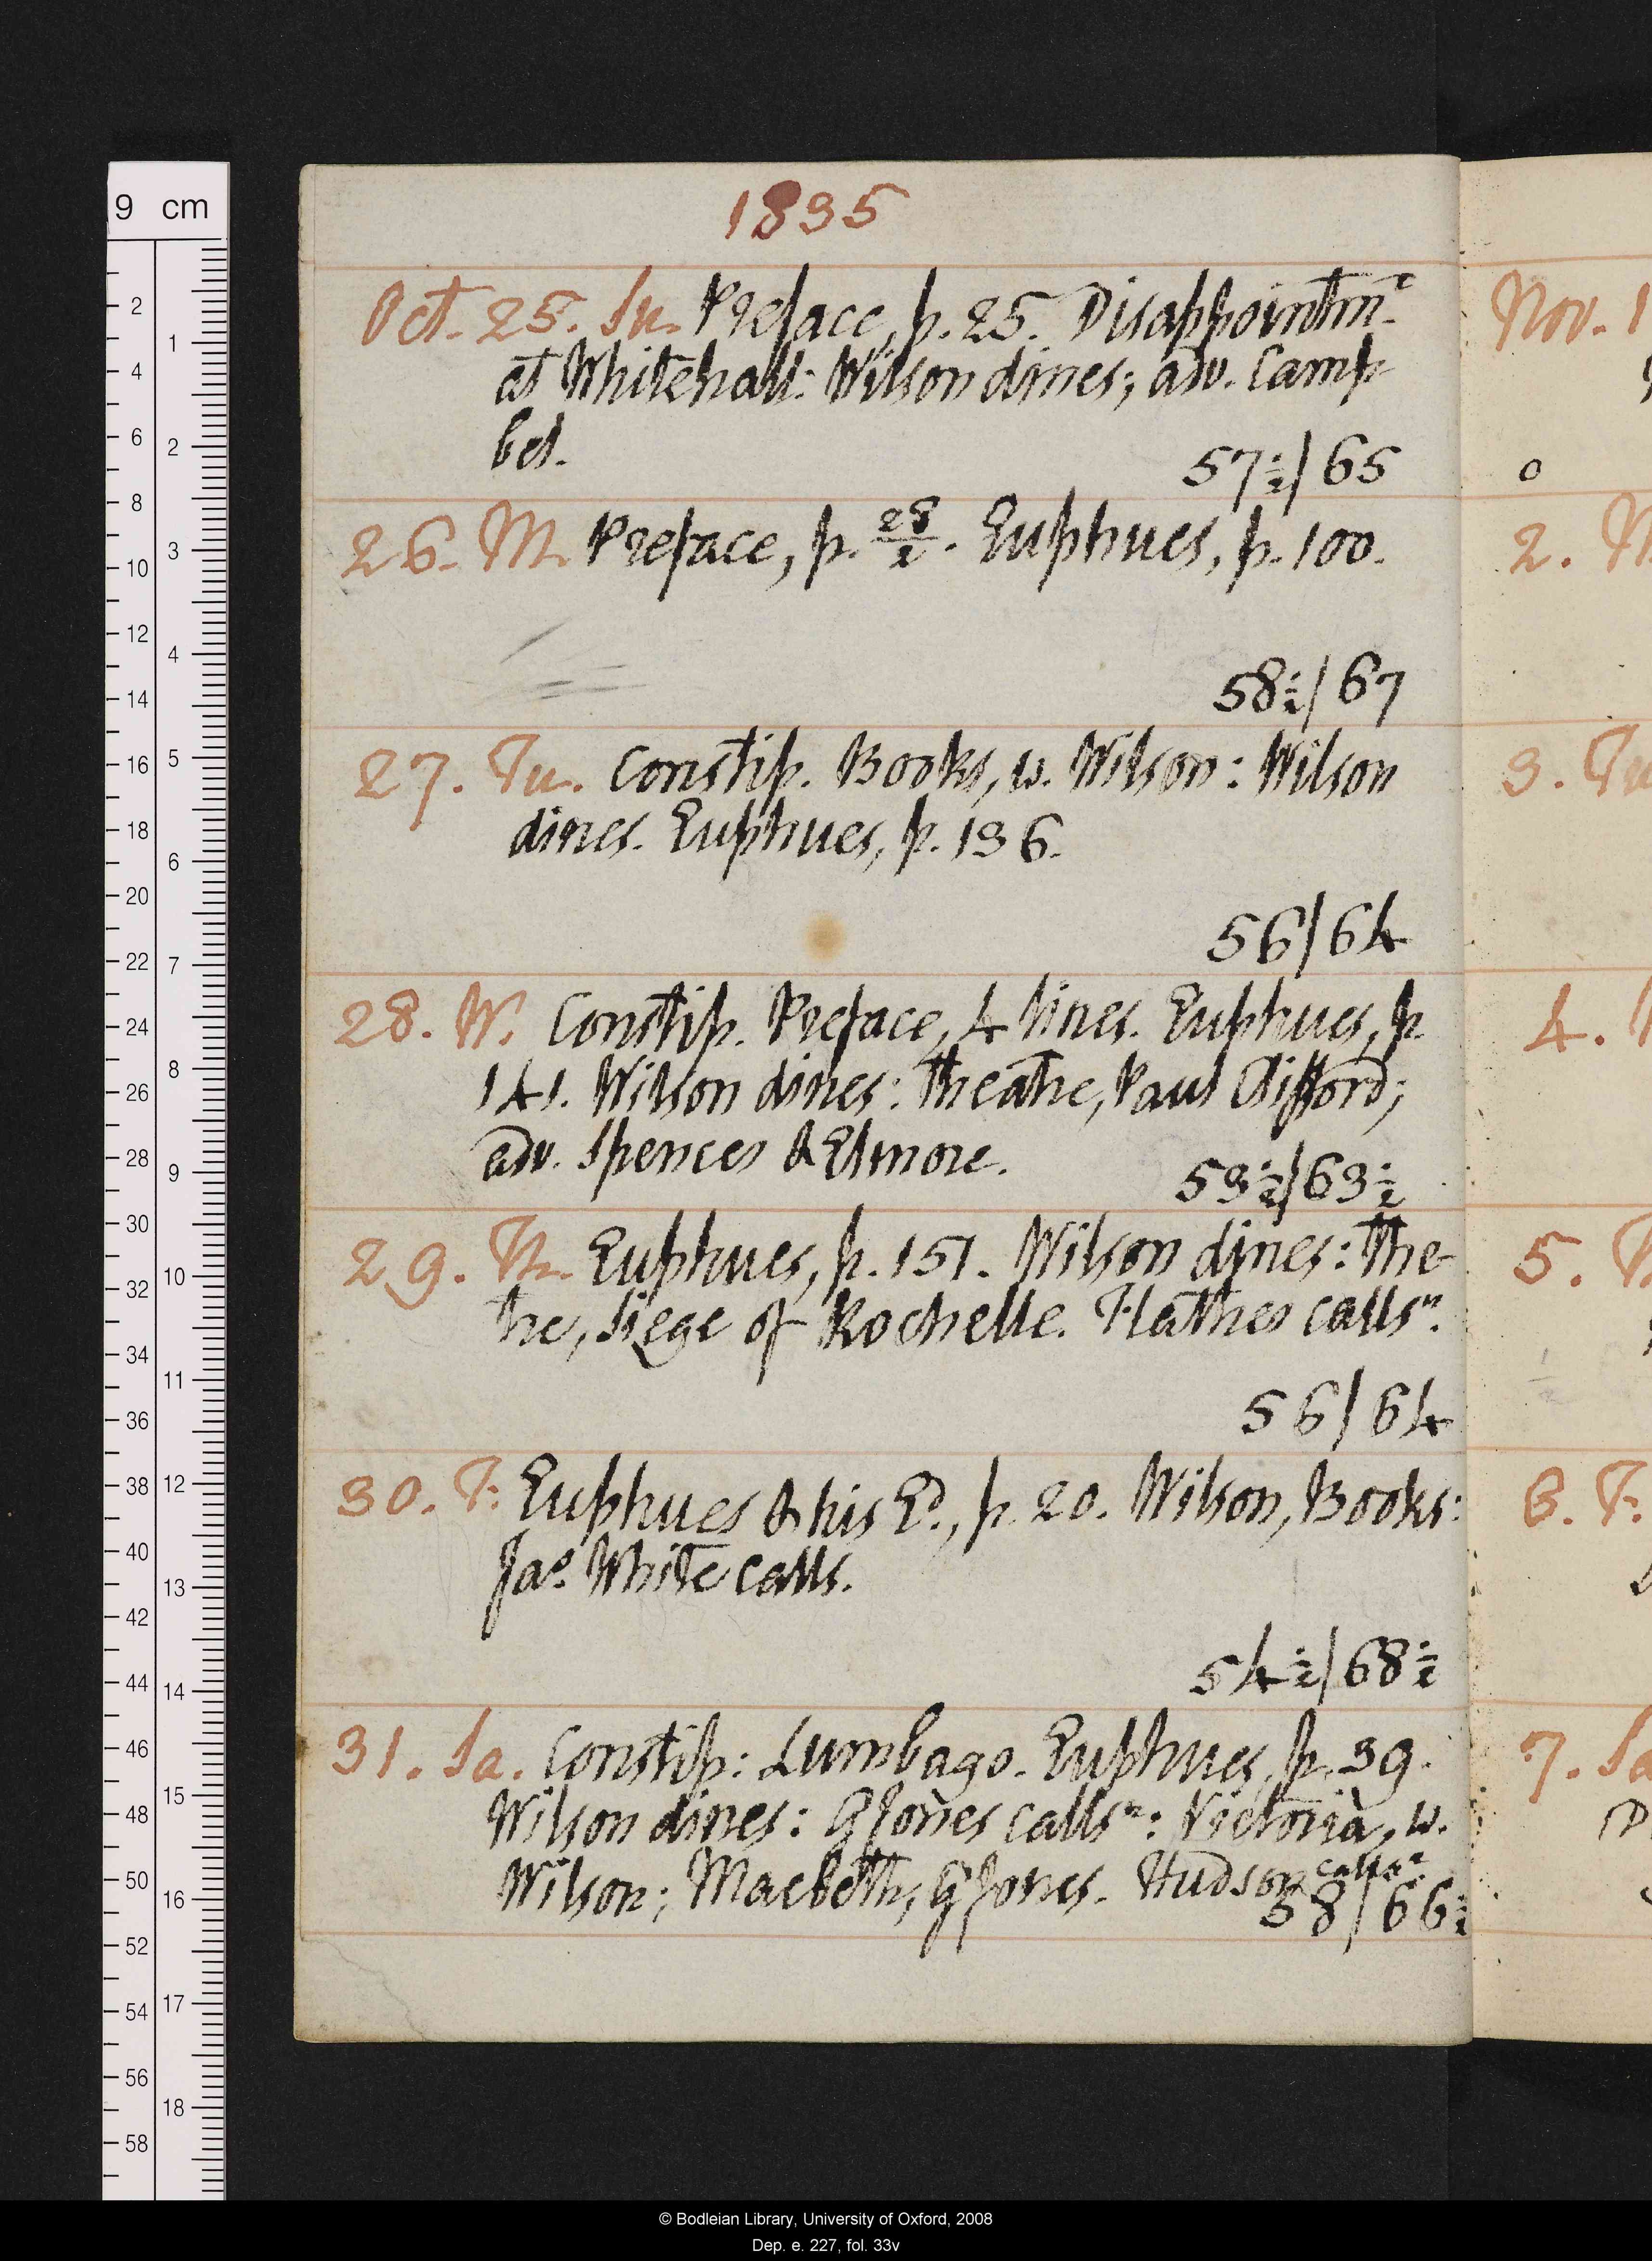 1835
Oct. 25. Su. Preface, p. 25. Disappointmt.
at Whitehall: Wilson dines; adv. Camp
bel.
57½/65
26. M. Preface, p. 28/2. Euphues, p. 100.
58½/67
27. Tu. Constip. Books, w. Wilson: Wilson
dines. Euphues, p. 136.
56/64
28. W. Constip. Preface, 4 lines. Euphues, p.
141. Wilson dines: theatre, Paul Clifford;
adv. Spences & Elmore.
53½/63½
29. Th. Euphues, p. 151. Wilson dines: The-
tre, Siege of Rochelle. Hathes callsn.
56/64
30. F. Euphues & his Ed., p. 20. Wilson, Books:
Jas. White calls.
54½/68½
31. Sa. Constip: Lumbago. Euphues, p. 39.
Wilson dines: GJones callsn: Victoria, w.
Wilson; Macbeth, GJones. Hudson callsn.
58/66½
Nov. 1
o
2. M
3. Tu
4.
5. T
6. F.
7. Sa
9 cm
2 4 6 8 10 12 14 16 18 20 22 24 26 28 30 32 34 36 38 40 42 44 46 48 50 52 54 56 58
1 2 3 4 5 6 7 8 9 10 11 12 13 14 15 16 17 18
© Bodleian Library, University of Oxford, 2008
Dep. e. 227, fol. 33v